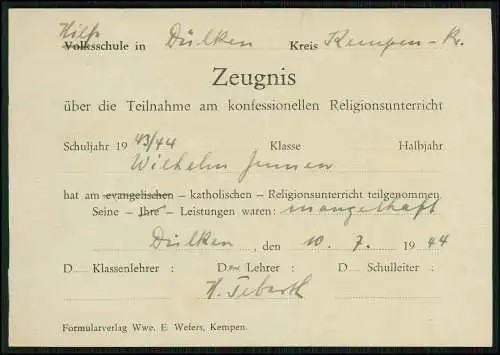 Hilfs
Volksschule in Dülken Kreis Kempen-Kr.
Zeugnis
über die Teilnahme am konfessionellen Religionsunterricht
Schuljahr 19 43/44 Klasse Halbjahr
Wilhelm Jensen
hat am evangelischen – katholischen – Religionsunterricht teilgenommen
Seine – Ihre – Leistungen waren: mangelhaft
Dülken, den 10. 7. 1944
D Klassenlehrer : D Lehrer : D Schulleiter :
H. Tebarth
Formularverlag Wwe. E. Wefers, Kempen.